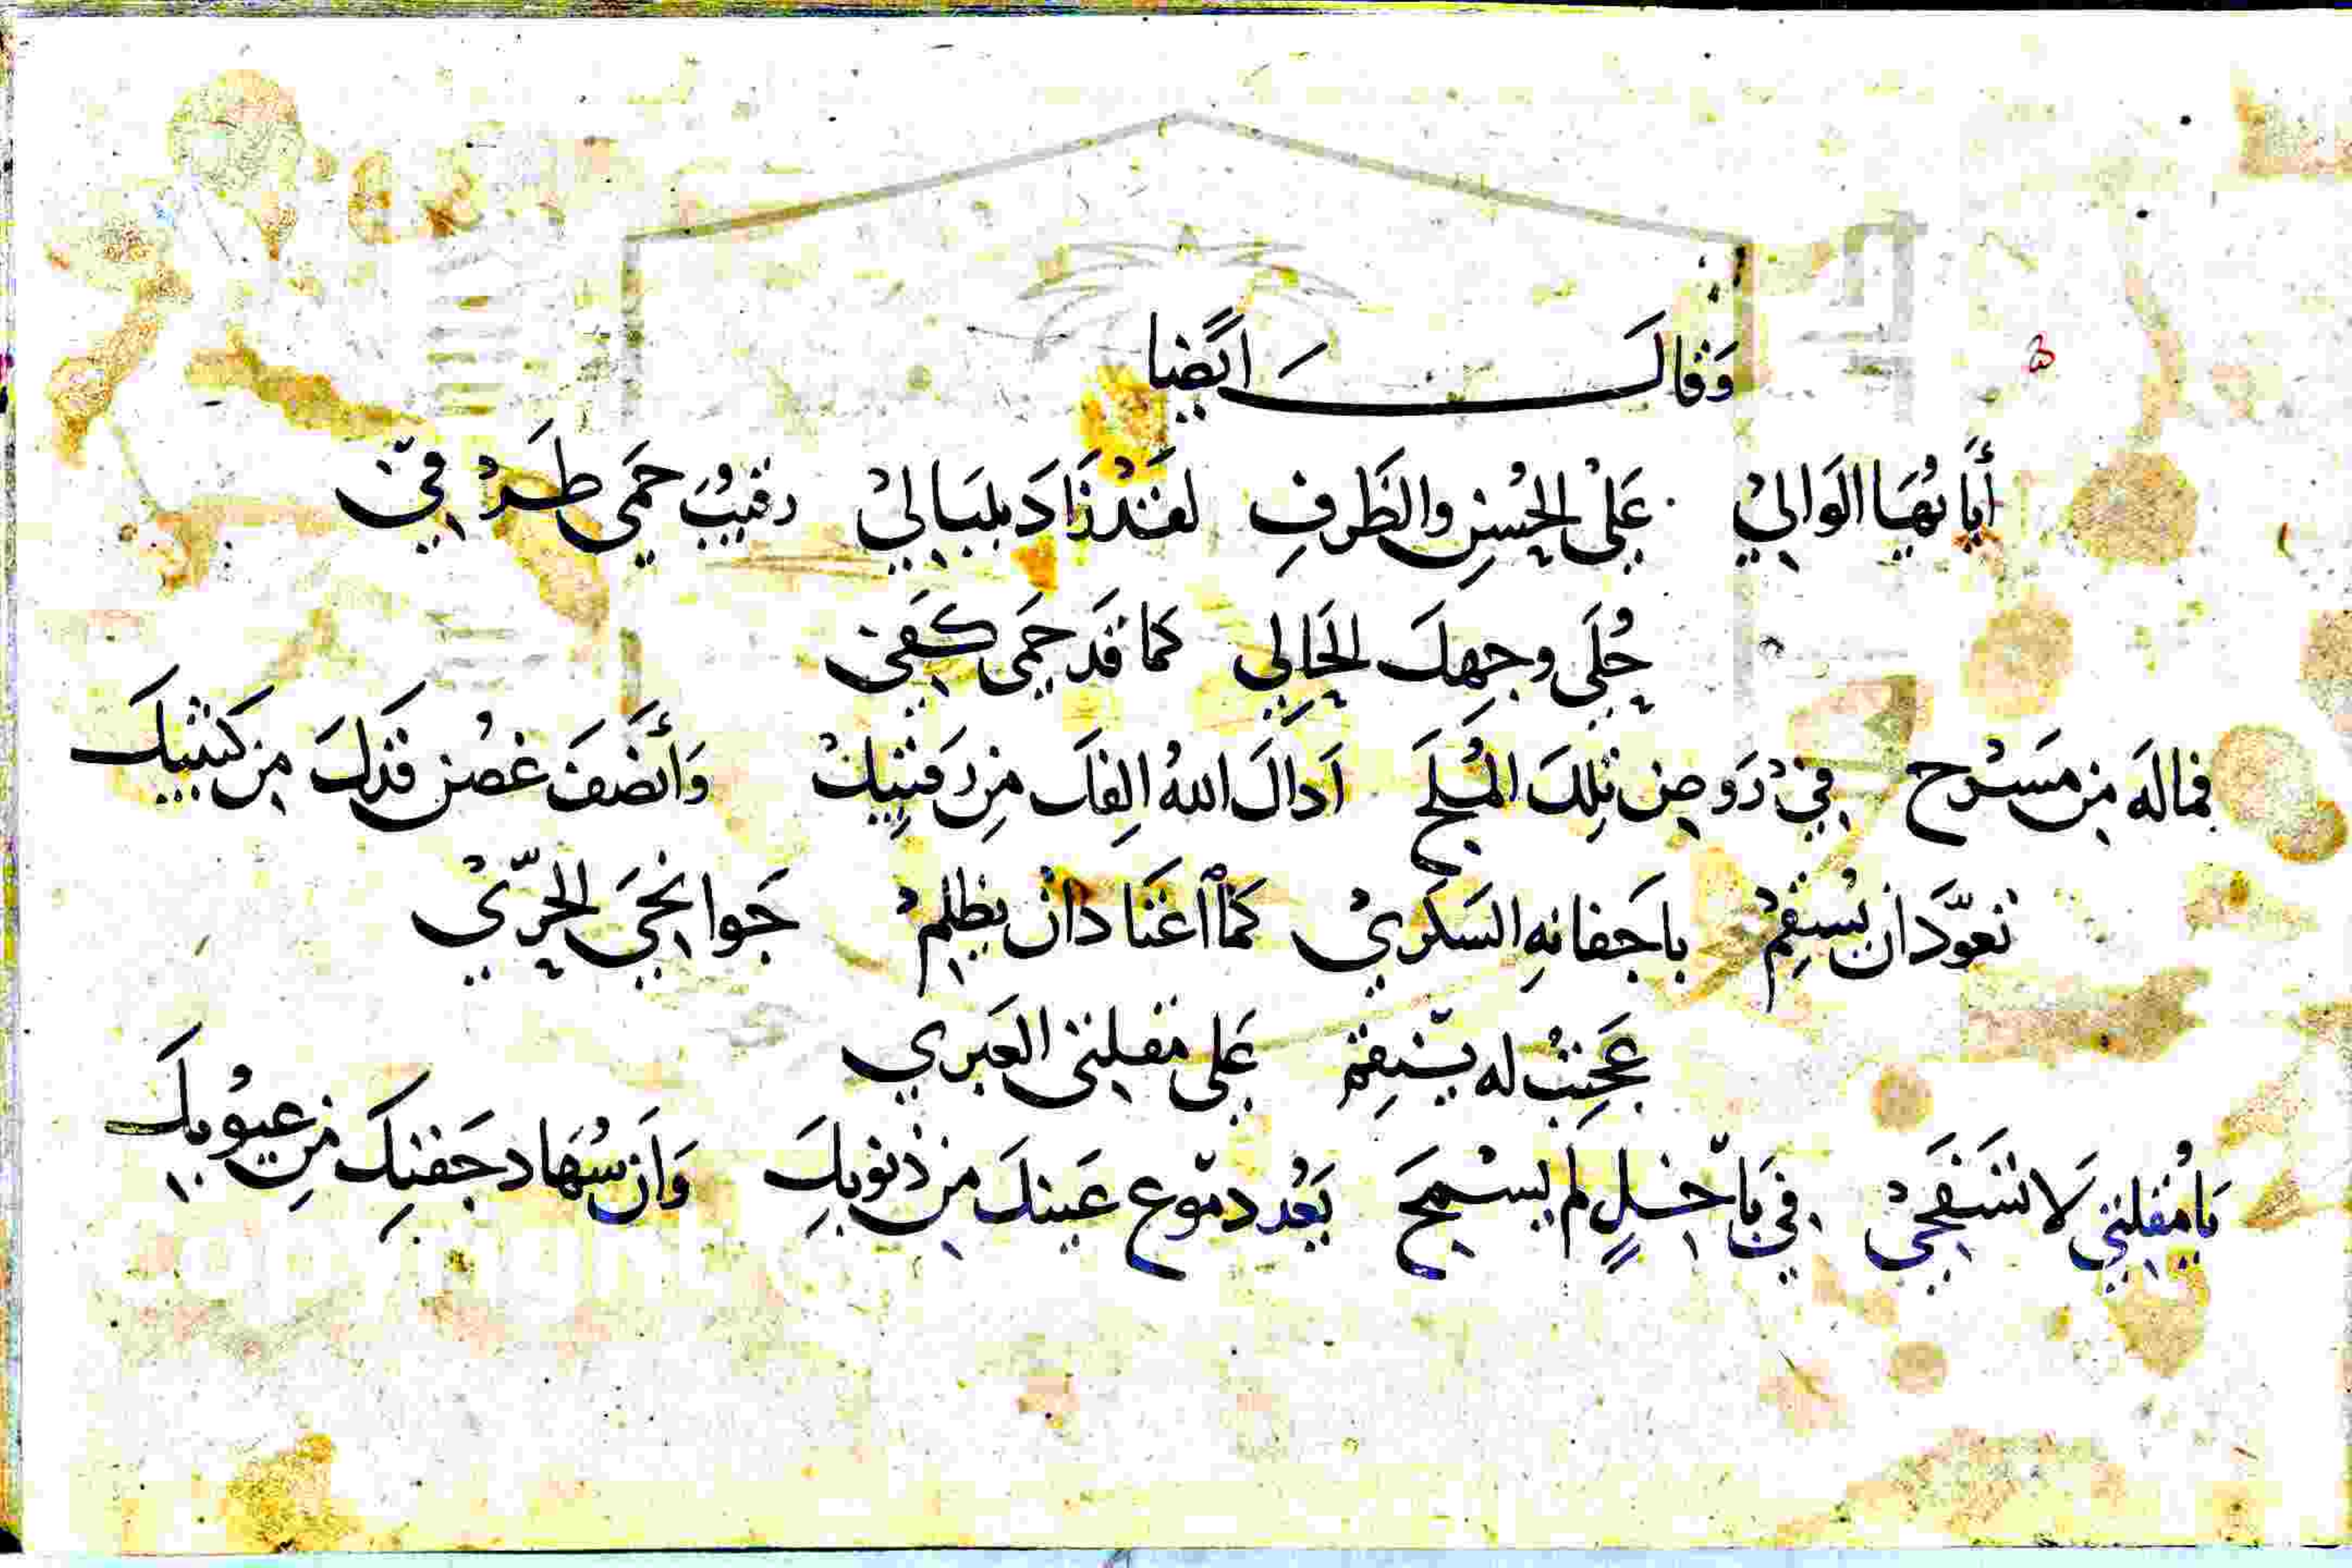 وَقَالَ اَيضًا
أَيَا بُهَا الوَالِيْ عَلىْ الحُسنِ والظَرفِ لقَدْ زَادَ بلبَالِيْ رقيبُ حَمَى طَرْفيّ
حُلَى وجهِكَ الحَالِي كما قَد حَمَى كفَي
فما لَه من مَسَرْح فيْ رَوضِ تلِكَ المُلَح اَدالَ اللهُ اِلفكَ مِن رَقيبِكْ وَأنصَفَ غصُن قدّكَ مِن كثيبِكَ
تعوَّدَ ان يُسقِمْ باَجفانهِ السَكرَيْ كمَا اعتَادَ انْ يظلِمْ جَوانحَي الحرّيْ
عَجبِتُ له يَنتقِم عَلى مقلتي العَبرَي
يَا مُقلتي لَا تسَفَحيْ في بَاخلٍ لم يسْمَح يَعُد دمَوع عَينكَ من ذنوبكِ وَاَن سُهَاد جَفنِكَ مِن عيوْبِكَ